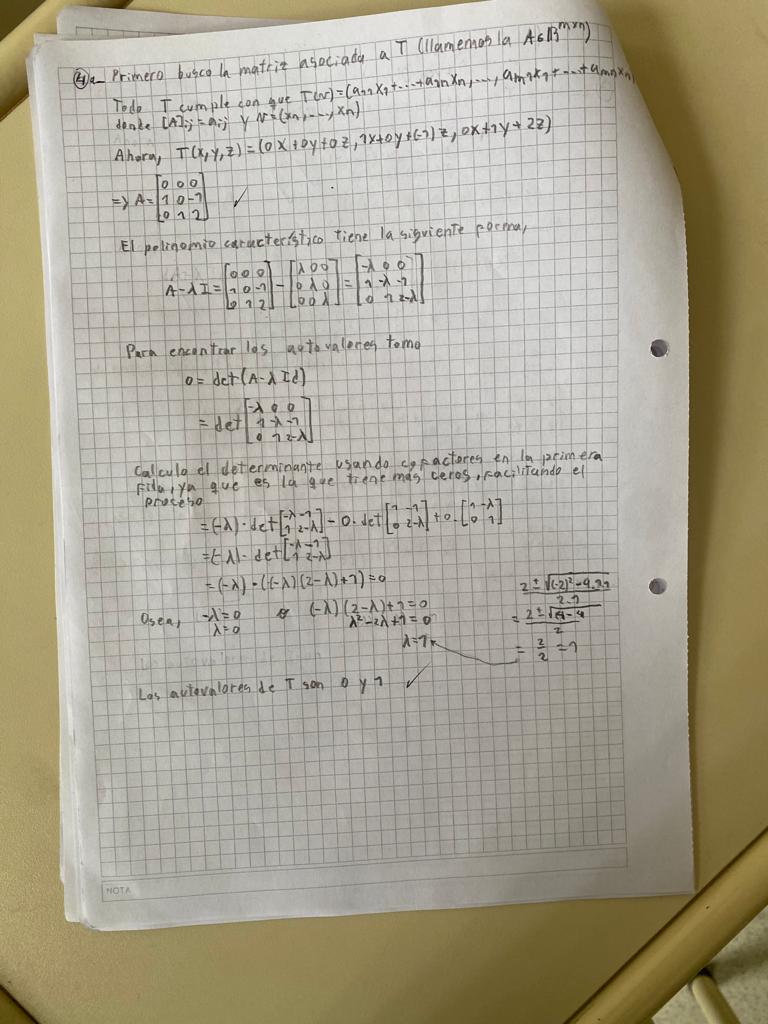 ④a- Primero busco la matriz asociada a T (llamemosla A∈ℝ^{m×n})
Todo T cumple con que T(v)=(a₁₁x₁+...+a₁nxn,..., am₁x₁+...+amnxn)
donde [A]ij=aij y v=(x₁,...,xn)
Ahora, T(x,y,z)=(0x+0y+0z,1x+0y+(-1)z,0x+1y+2z)
=> A= [0 0 0
1 0 -1
0 1 2] ✓
El polinomio característico tiene la siguiente forma,
A-λI= [0 0 0; 1 0 -1; 0 1 2] - [λ 0 0; 0 λ 0; 0 0 λ] = [-λ 0 0; 1 -λ -1; 0 1 2-λ]
Para encontrar los autovalores tomo
0= det(A-λId)
= det [-λ 0 0; 1 -λ -1; 0 1 2-λ]
Calculo el determinante usando cofactores en la primera
fila, ya que es la que tiene más ceros, facilitando el
proceso
=(-λ)·det[-λ -1; 1 2-λ] - 0·det[1 -1; 0 2-λ] +0·[1 -λ; 0 1]
=(-λ)·det[-λ -1; 1 2-λ]
=(-λ)·((-λ)(2-λ)+1)=0
Osea, -λ=0 (-λ)(2-λ)+1=0
λ=0 λ²-2λ+1=0
λ=1
2±√(-2)²-4.1.1 / 2.1
= 2±√4-4 / 2
= 2/2 =1
Los autovalores de T son 0 y 1 ✓
NOTA